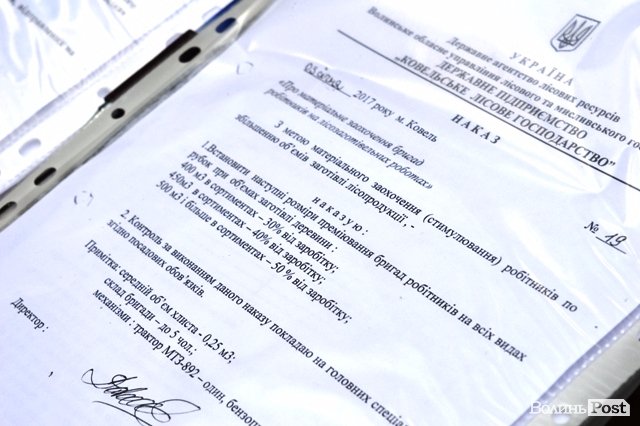 УКРАЇНА
Державне агентство лісових ресурсів
Волинське обласне управління лісового та мисливського гос
ДЕРЖАВНЕ ПІДПРИЄМСТВО
"КОВЕЛЬСЬКЕ ЛІСОВЕ ГОСПОДАРСТВО"
НАКАЗ
№ 19
2017 року м. Ковель
«Про матеріальне заохочення бригад
робітників на лісозаготівельних роботах»
З метою матеріального заохочення (стимулювання) робітників по
збільшенню об'ємів заготівлі лісопродукції, -
наказую:
1.Встановити наступні розміри преміювання бригад робітників на всіх видах
рубок при об'ємах заготівлі деревини :
400 м3 в сортиментах – 30% від заробітку;
450м3 в сортиментах – 40% від заробітку;
500 м3 і більше в сортиментах – 50 % від заробітку;
2. Контроль за виконанням даного наказу покладаю на головних спеціал
згідно посадових обов'язків.
Примітка: середній об'єм хлиста - 0,25 м3;
склад бригади – до 5 чол.;
механізми : трактор МТЗ-892 – один, бензоп
Директор :
Волинь Post